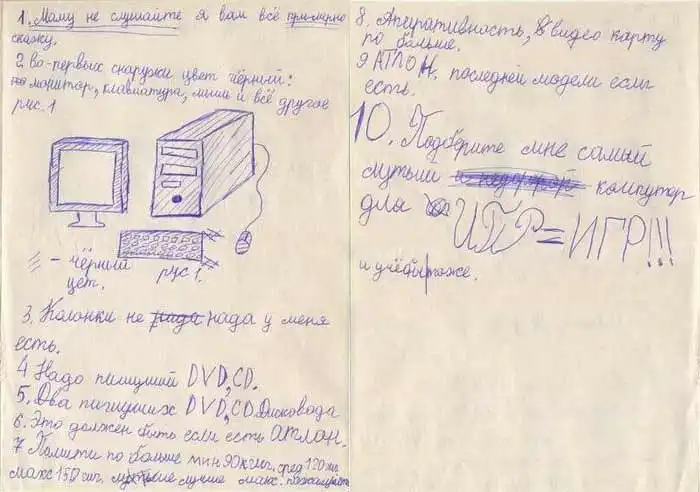 1. Маму не слушайте я вам всё примерно
скажу.
2 во-первых снаружи цвет чёрный:
монитор, клавиатура, мыша и всё другое
рис. 1
≡ - чёрный рус 1.
цет.
3. Колонки не нада у меня
есть.
4 Надо пишущий DVD, CD.
5. Два пишущих DVD, CD Дисковода
6. Это должен быть если есть атлон.
7 Памяти по больше мин 90 киг. сред 120 гиг
макс 150 гиг. лучше макс. пожалуста
8. Аперативность, В видео карту
по больше.
9 АТЛОН. последней модели если
есть.
10. Подберите мне самый
лутьши компутер
для ИГР=ИГР!!!
и учёбы тоже.